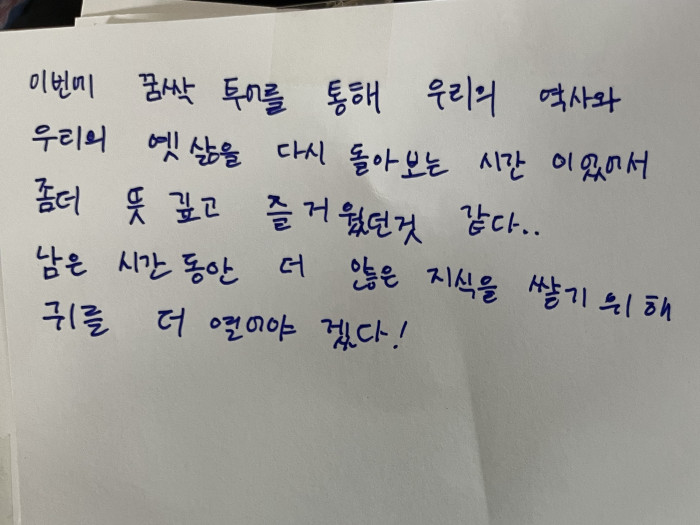 이번에 꿈싹 투어를 통해 우리의 역사와
우리의 옛 삶을 다시 돌아보는 시간 이었어서
좀더 뜻 깊고 즐거웠던것 같다..
남은 시간동안 더 많은 지식을 쌓기 위해
귀를 더 열어야 겠다!